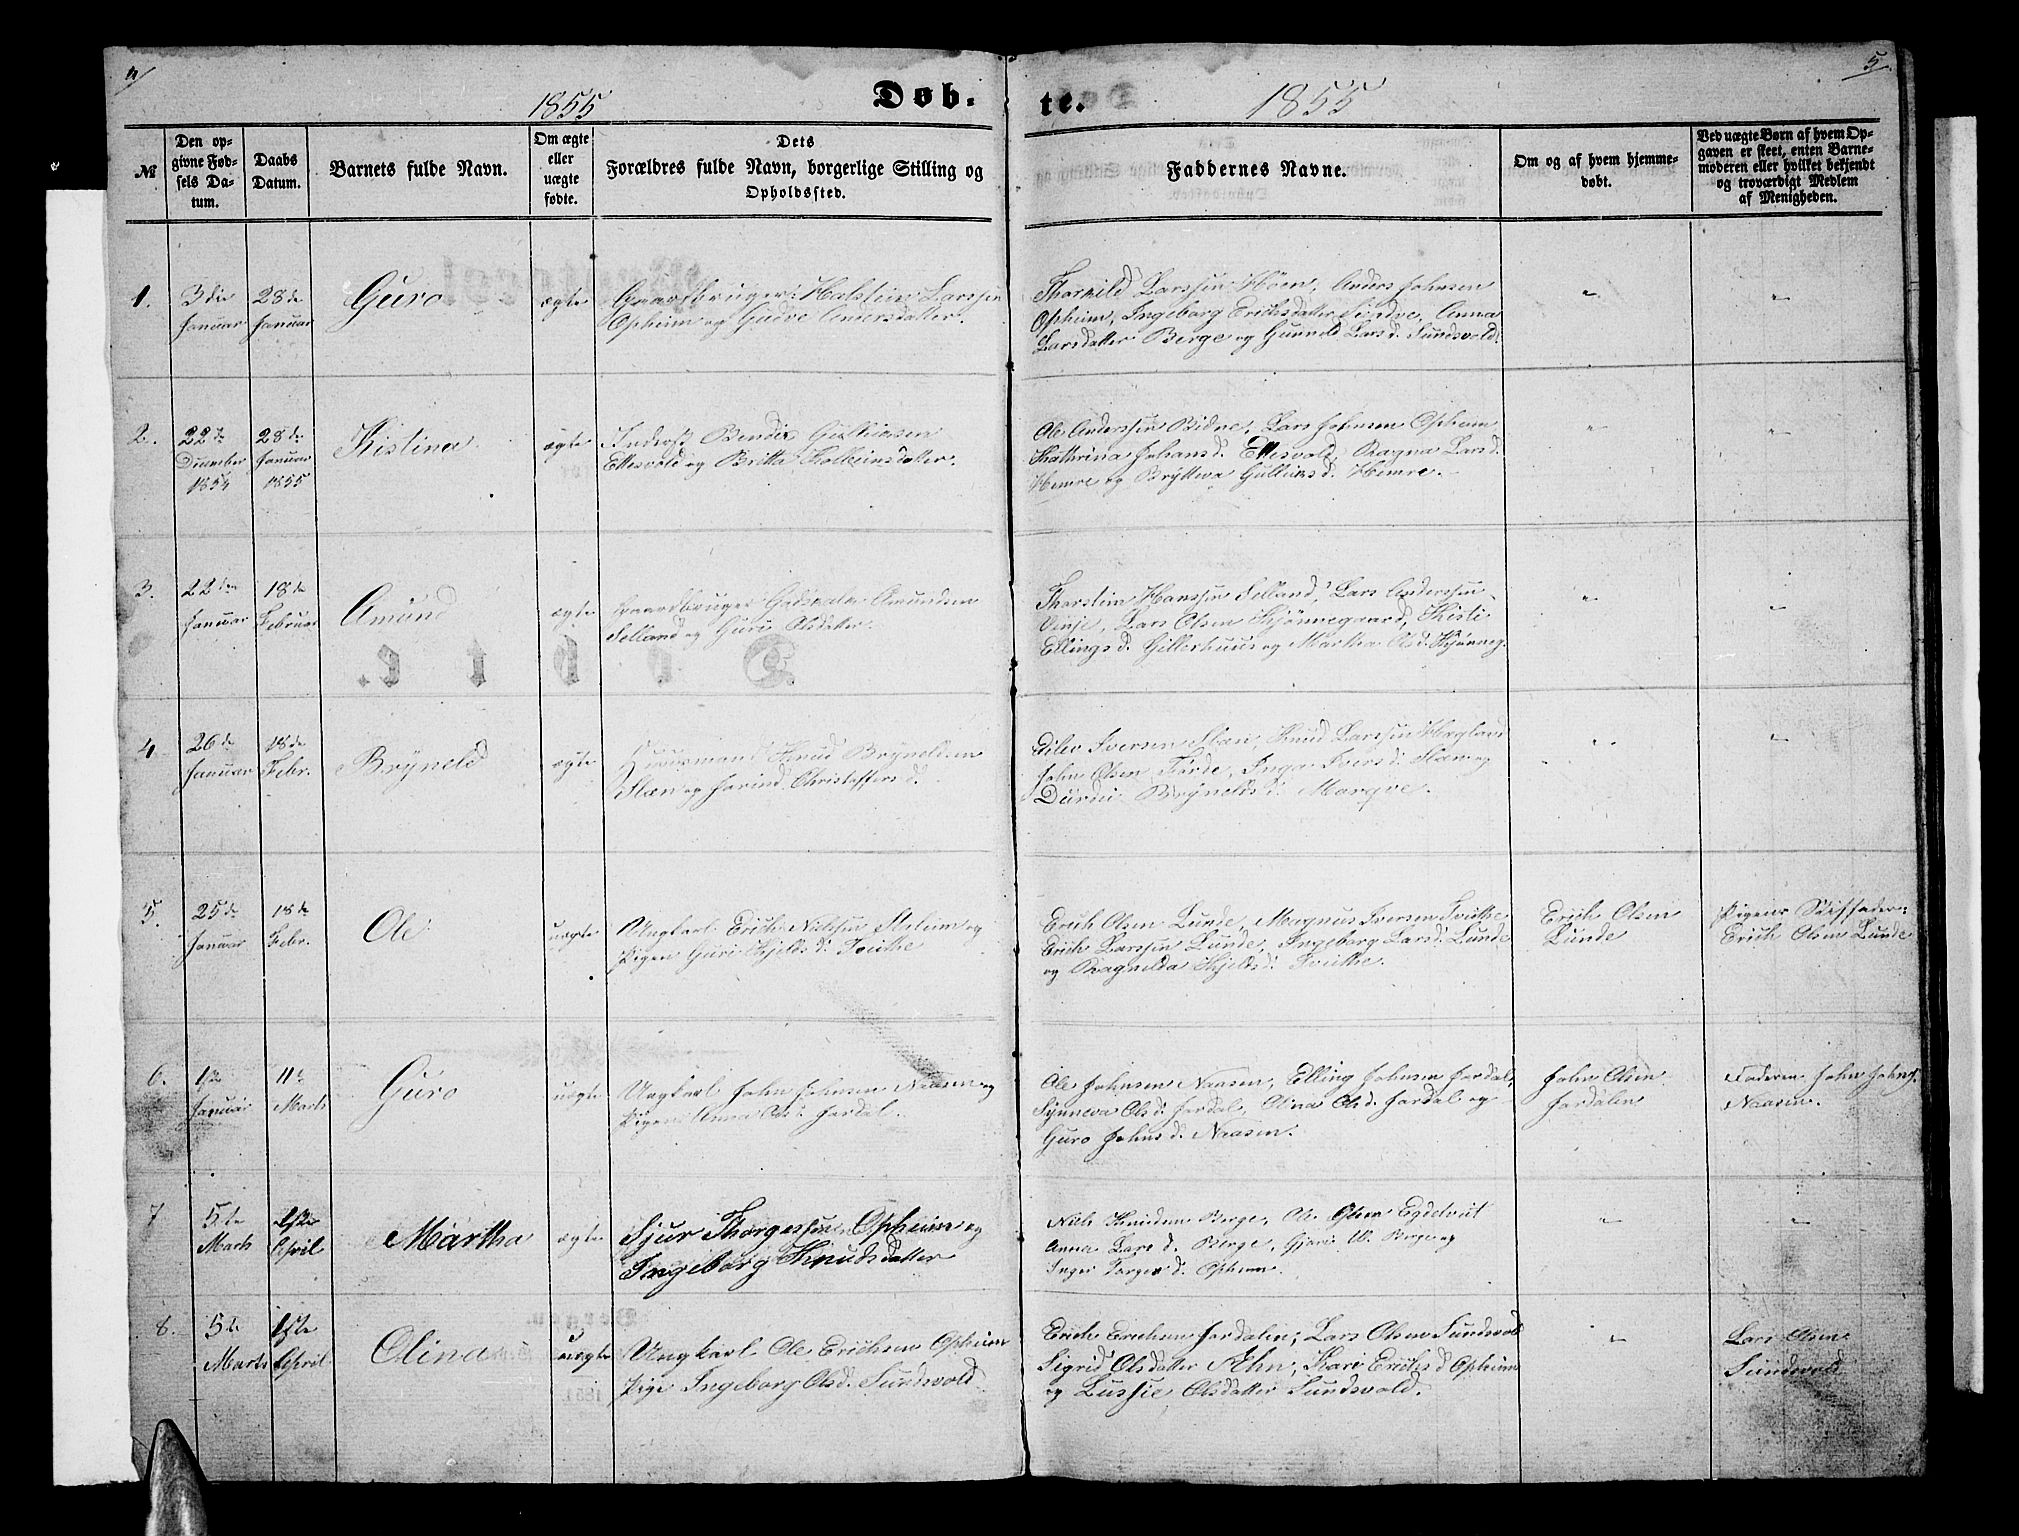 4
5
1855
Døb-
te.
1855
№
Den op-
givne Fød-
sels Da-
tum.
Daabs
Datum.
Barnets fulde Navn.
Om ægte
eller
uægte
fødte.
Dets
Forældres fulde Navn, borgerlige Stilling og
Opholdssted.
Faddernes Navne.
Om og af hvem hjemme-
døbt.
Ved uægte Børn af hvem Op-
gaven er skeet, enten Barne-
moderen eller hvilket bekjendt
og troværdigt Medlem
af Menigheden.
1.
3die
Januar
28de
Januar
Guro
ægte
Gaardbruger Halstein Larssen
Opheim og Gudve Andersdatter.
Thorkild Larssen Høen, Anders Johnsen
Opheim, Ingeborg Erichsdatter Sundve, Anna
Larsdatter Berge og Gunnild Larsd. Sundsvold.
"
"
2.
22de
December
1854
28de
Januar
1855
Kistina
ægte
Inderst Bendix
Ettesvold og Britta Kolbeinsdatter.
Ole Anderssen Bidne, Lars Johnsen Opheim
Kathrina Johansd. Ettesvold, Ragna Larsd.
Hemre og Brytteva Gulleiksd. Hemre.
"
"
3.
22den
Januar
18de
Februar
Amund
ægte
Gaardbruger Amundsen
Selland og Guri Olsdatter.
Thorstein Hanssen Selland, Lars Anderssen
Vinje, Lars Olsen Kjønnegaard, Kisti
Ellingsd. Gillerhuus og Martha Olsd. Kjønneg.
"
"
4
26de
Januar
18de
Febr.
Bryneld
ægte
Huusmand Knud Bryneldsen
Slæn og Jorind Christoffersd.
Ditlev Iversen Slæn, Knud Larssen Hægland
John Olsen Førde, Inga Iversd. Slæn og
Durdei Bryneldsd. Marqve.
"
"
5.
25de
Januar
18de
Febr.
Ole
uægte
Ungkarl Erich Nielssen og
Pigen Guri Kjeldsd. Tvithe
Erich Olsen Lunde, Magnus Iversen Tvithe
Erich Larssen Lunde, Ingeborg Larsd. Lunde
og Ragnilda Kjeldsd. Tvithe.
Erich Olsen
Lunde
Pigens Stiffader
Erich Olsen Lunde
6.
1ste
Januar
11te
Marts
Guro
uægte
Ungkarl John Johnsen Naasen og
Pigen Anna Olsd. Jordal.
Ole Johnsen Naasen, Elling Johnsen Jordal,
Synneva Olsd. Jordal, Olina Olsd. Jordal og
Guro Johnsd. Naasen.
John Olsen
Jordalen
Faderen John Johns.
Naasen.
7
5te
Marts
1ste
April
Martha
ægte
Sjur Thorgersen Opheim og
Ingeborg Knudsdatter
Niels Knudsen Berge, Ole Olsen Egdetveit
Anna Larsd. Berge, Berge og
Inger Torgersd. Opheim.
"
"
8.
5te
Marts
1ste
April
Olina
uægte
Ungkarl Ole Erichsen Opheim
Pige Ingeborg Olsd. Sundsvold
Erich Erichsen Jordalen, Lars Olsen Sundsvold
Sigrid Olsdatter Æhn, Kari Erichsd. Opheim
og Lussie Olsdatter Sundsvold.
"
Lars Olsen
Sundsvold